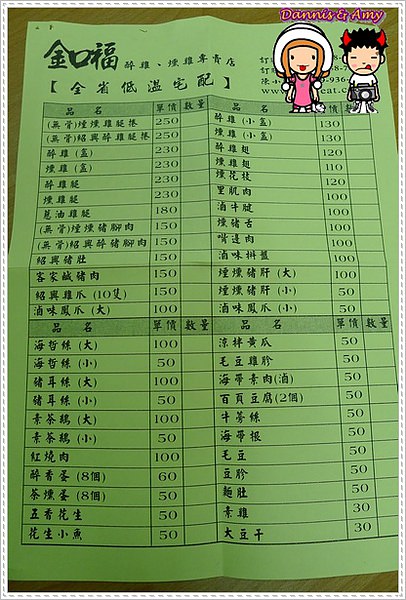 Dannis & Amy
金口福 醉雞、燻雞專賣店
【全省低溫宅配】
品 名 單價 數量 品 名 單價 數量
(無骨)煙燻雞腿捲 250 醉雞 (小盒) 130
(無骨)紹興醉雞腿捲 250 燻雞 (小盒) 130
醉雞 (盒) 230 醉雞翅 120
燻雞 (盒) 230 燻雞翅 110
醉雞腿 230 燻花枝 120
燻雞腿 230 里肌肉 100
蔥油雞腿 180 滷牛腱 100
(無骨)煙燻豬腳肉 150 燻豬舌 100
(無骨)紹興醉豬腳肉 150 嘴邊肉 100
紹興豬肚 150 滷味拼盤 100
客家鹹豬肉 150 煙燻豬肝 (大) 100
紹興雞爪 (10隻) 150 煙燻豬肝 (小) 50
滷味鳳爪 (大) 100 滷味鳳爪 (小) 50
品 名 單價 數量 品 名 單價 數量
海哲絲 (大) 100 涼拌黃瓜 50
海哲絲 (小) 50 毛豆雞胗 50
豬耳絲 (大) 100 海帶素肉(滷) 50
豬耳絲 (小) 50 百頁豆腐(2個) 50
素茶鵝 (大) 100 牛蒡絲 50
素茶鵝 (小) 50 海帶根 50
紅燒肉 100 毛豆 50
醉香蛋 (8個) 60 豆胗 50
茶燻蛋 (8個) 50 麵肚 50
五香花生 50 素雞 30
花生小魚 50 大豆干 30